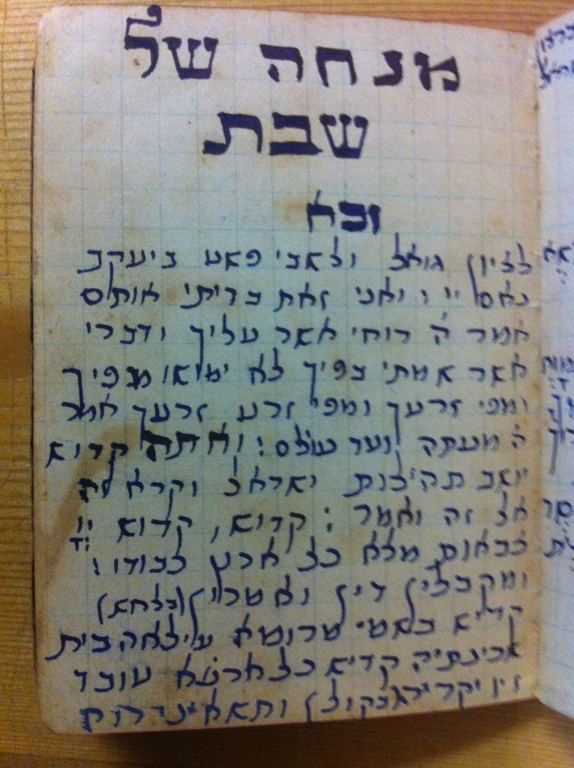 מנחה של
שבת
ובא
לציון גואל ולשבי פשע ביעקב
נאם יי ו ואני זאת בריתי אותם
אמר ה' רוחי אשר עליך ודברי
אשר שמתי בפיך לא ימושו מפיך
ומפי זרעך ומפי זרע זרעך אמר
ה' מעתה ועד עולם: ואתה קדוש
יושב תהילות ישראל וקרא זה
אל זה ואמר: קדוש, קדוש
צבאות מלא כל ארץ כבודו:
ומקבלין דין ואמרין (בלחש)
קדיש בשמי מרומא עילאה בית
שכינתיה קדיש כל ארעא עובד